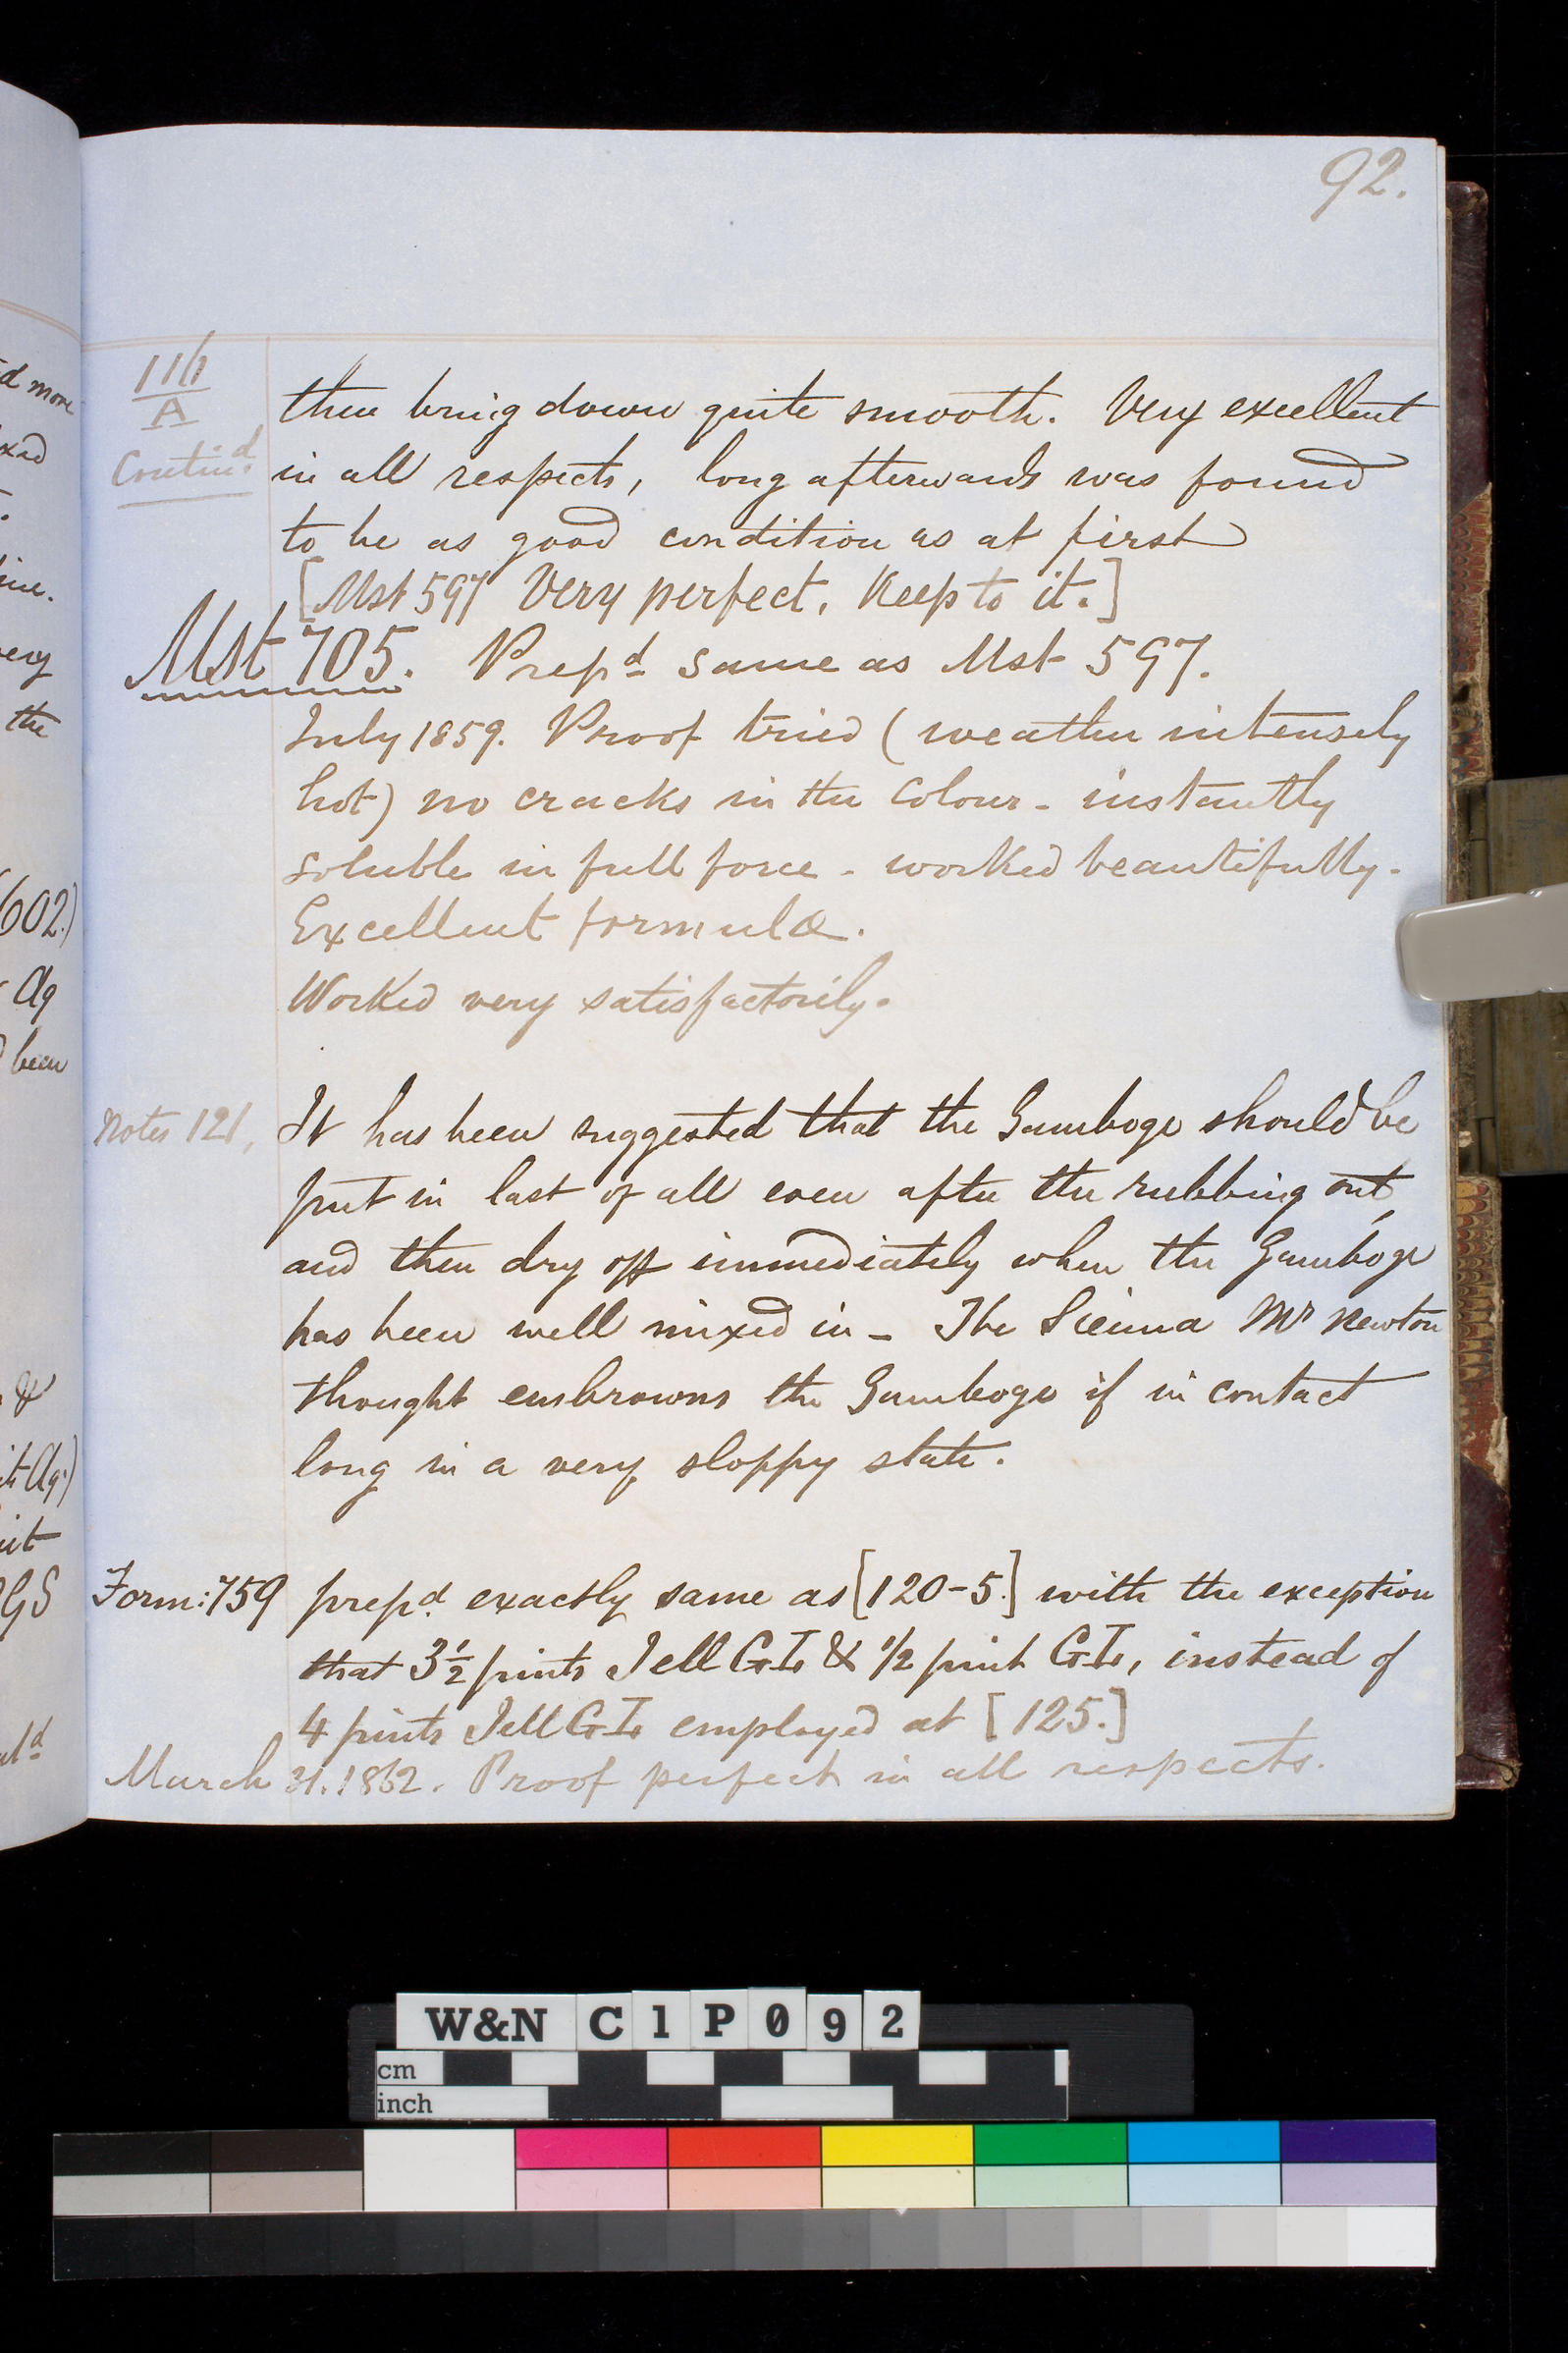 92.
116
A
Contin.d
then bring down quite smooth. Very excellent
in all respects, long afterwards was found
to be as good condition as at first
[Mst 597 Very perfect. Keep to it.]
Mst 705. Prepd same as Mst 597.
July 1859. Proof tried (weather intensely
hot) no cracks in the colour - instantly
soluble in full force - worked beautifully.
Excellent formula.
Worked very satisfactorily.
Notes 121. It has been suggested that the Gamboge should be
put in last of all even after the rubbing out,
and then dry off immediately when the Gamboge
has been well mixed in - The Sienna Mr Newton
thought embrowns the Gamboge if in contact
long in a very sloppy state.
Form: 759 prepd exactly same as [120-5.] with the exception
that 3½ pints Jell GI & 1/2 pint GI, instead of
4 pints Jell GI employed at [125.]
March 31. 1862. Proof perfect in all respects.
d more
xed
very
the
602.)
Aq
been
&
it Aq.)
GS
W&N C1P092
cm
inch